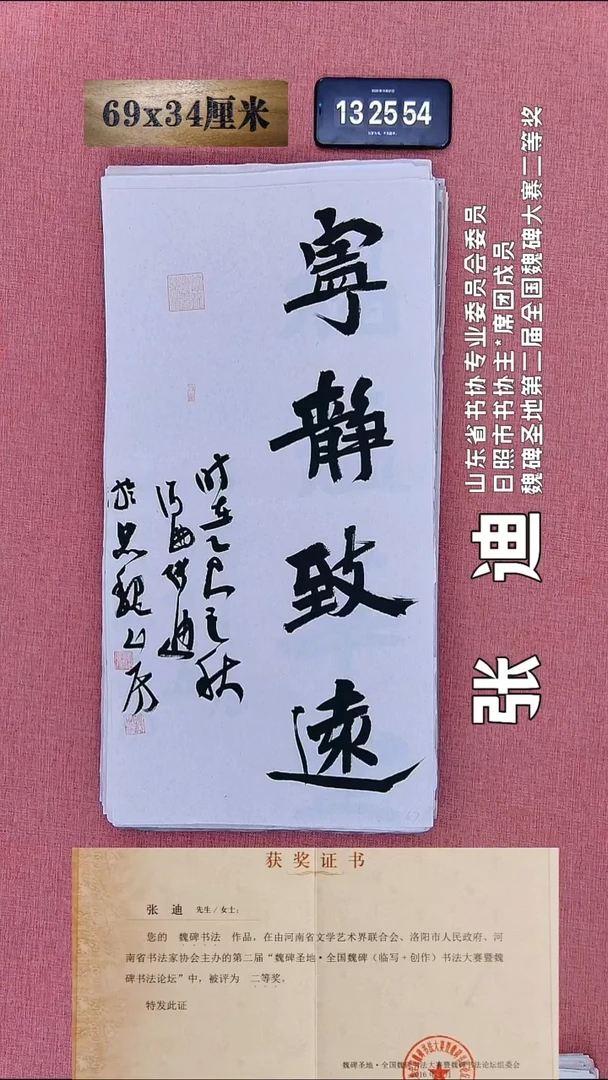 69x34厘米
13 25 54
寧靜致遠
时在乙巳之秋
迪
於思魏山房
山东省书协专业委员会委员
日照市书协主*席团成员
魏碑圣地第二届全国魏碑大赛二等奖
张 迪
获奖证书
张 迪 先生/女士：
您的 魏碑书法 作品，在由河南省文学艺术界联合会、洛阳市人民政府、河
南省书法家协会主办的第二届“魏碑圣地·全国魏碑（临写+创作）书法大赛暨魏
碑书法论坛”中，被评为 二等奖。
特发此证
魏碑圣地·全国魏碑书法大赛暨魏碑书法论坛组委会